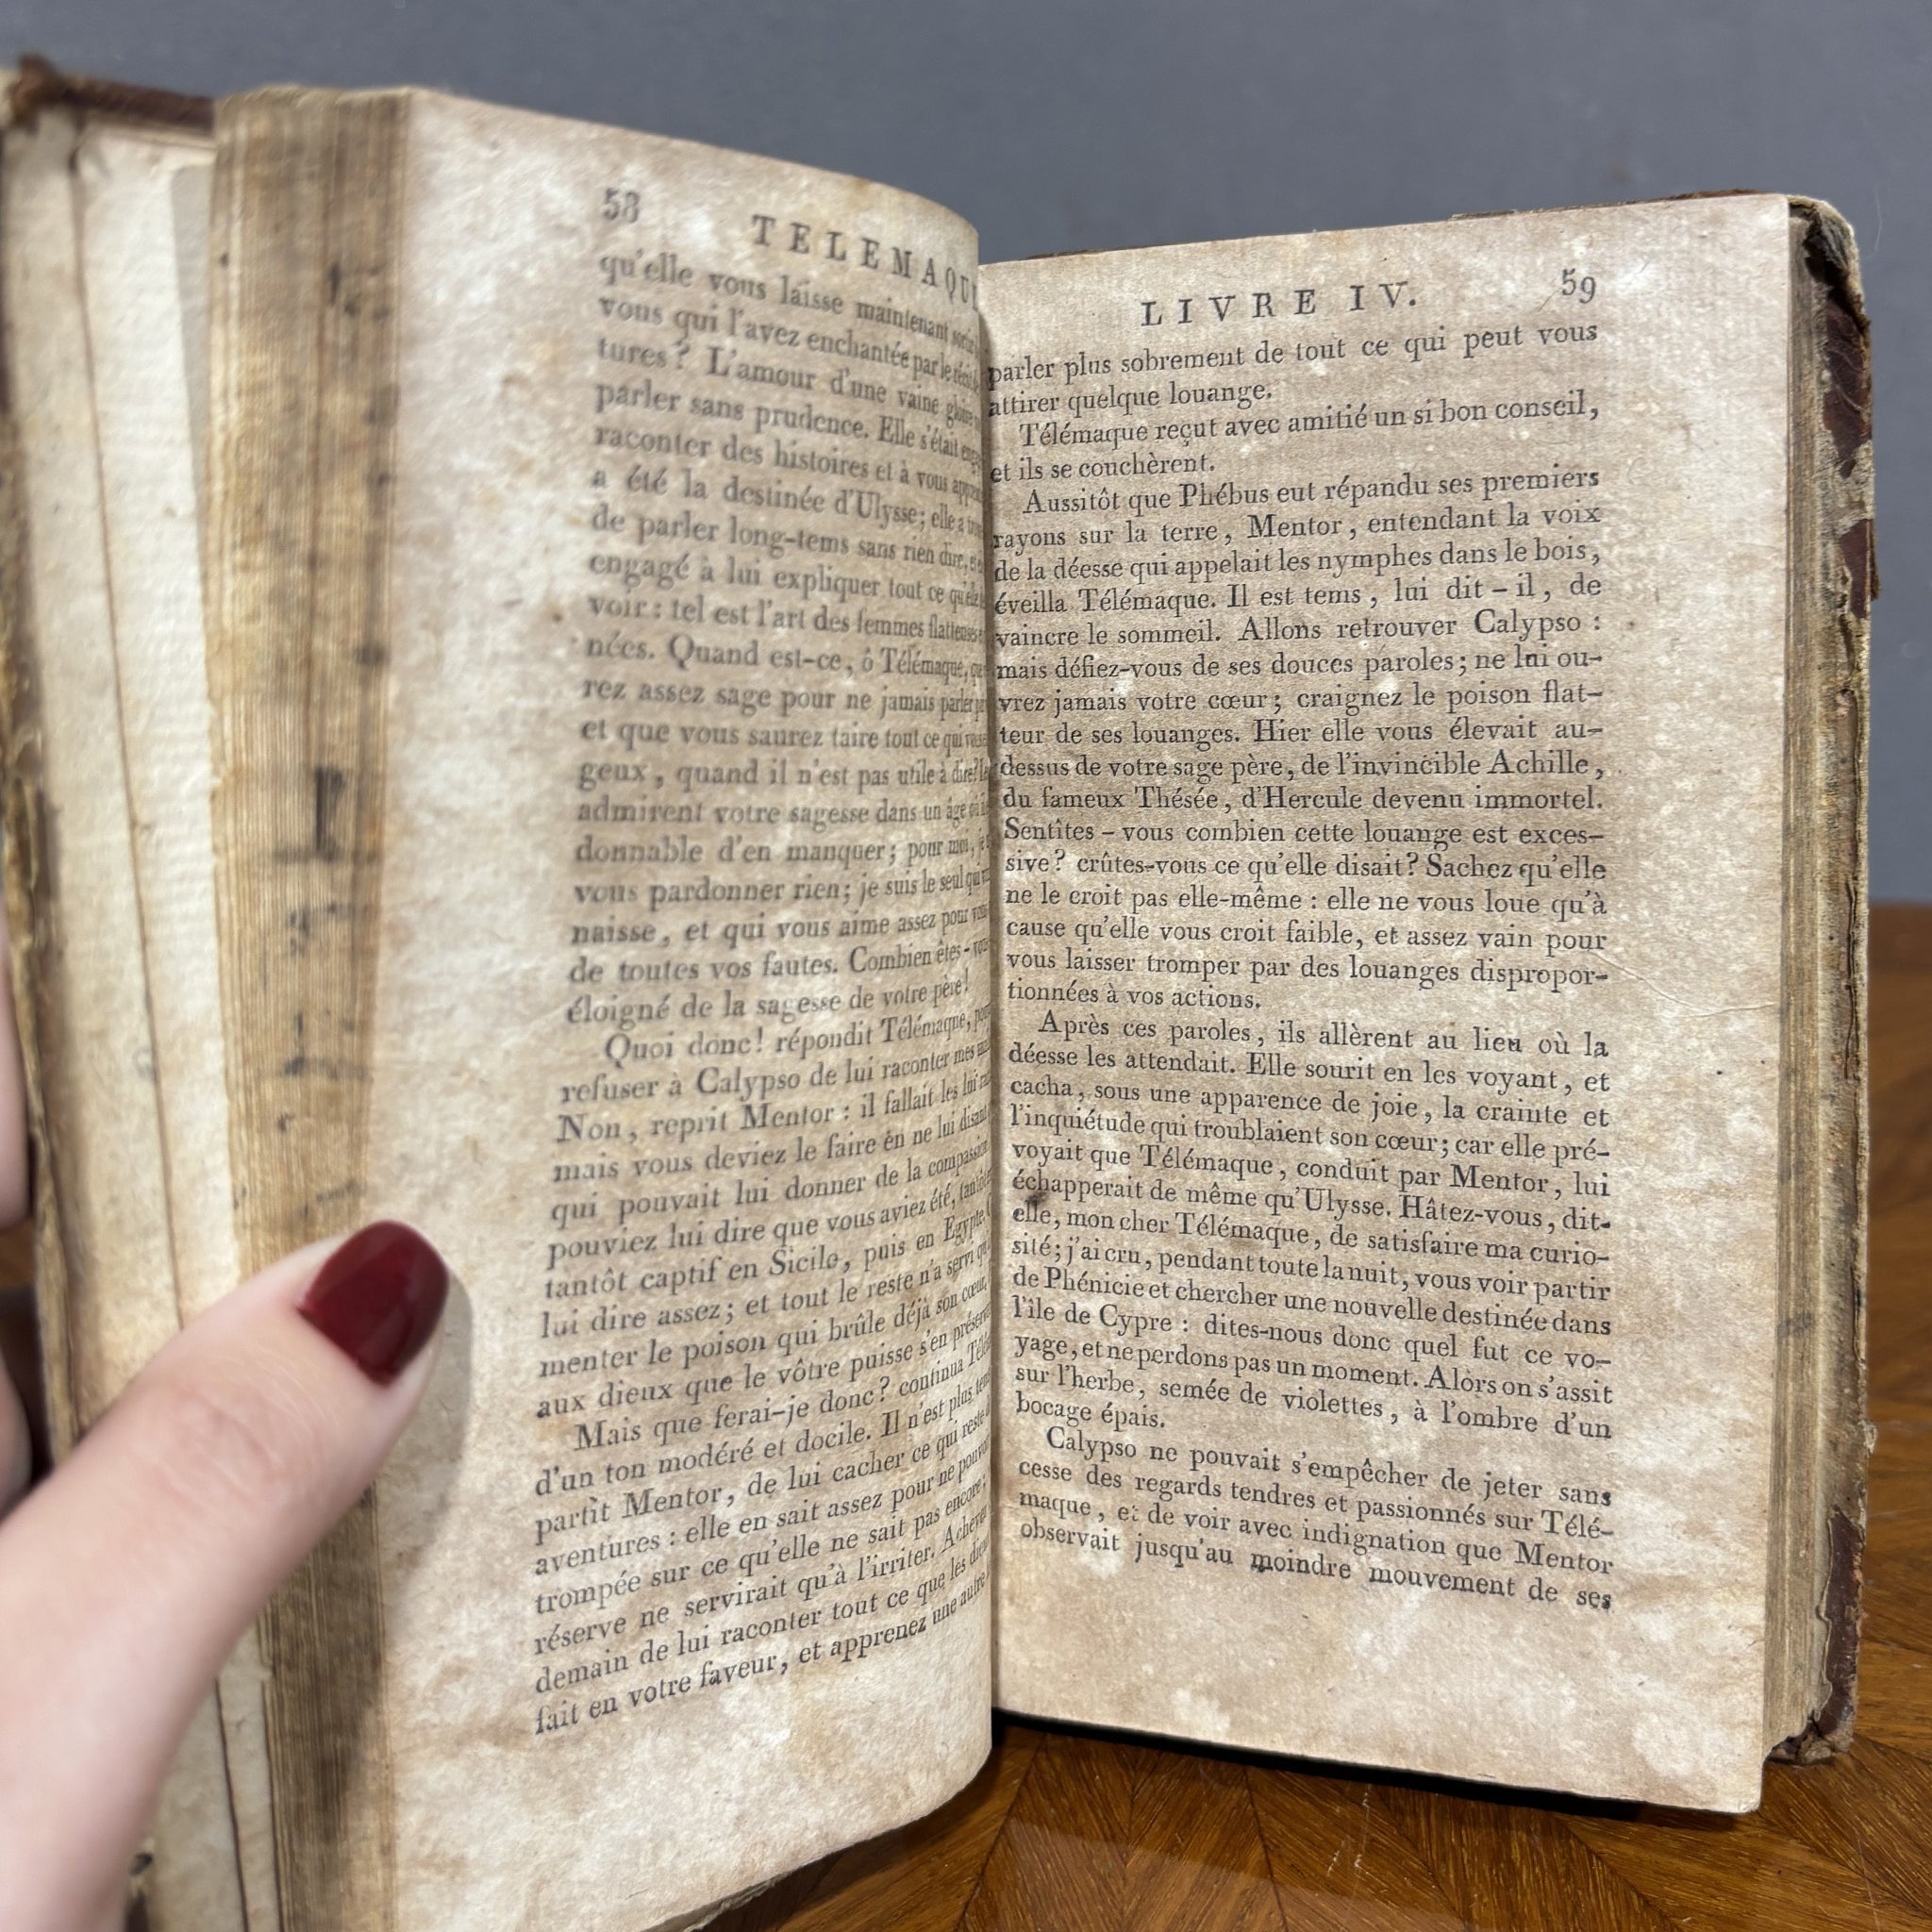 58
TELEMAQU
qu'elle vous laisse maintenant
vous qui l'avez enchantée par le
tures? L'amour d'une vaine
parler sans prudence. Elle s'était
raconter des histoires et à vous
a été la destinée d'Ulysse; elle a
de parler long-tems sans rien dire,
engagé à lui expliquer tout ce
voir : tel est l'art des femmes flatteuses
nées. Quand est-ce, ô Télémaque,
rez assez sage pour ne jamais parler
et que vous saurez taire tout ce qui
geux, quand il n'est pas utile à dire?
admirent votre sagesse dans un âge
donnable d'en manquer; pour moi,
vous pardonner rien; je suis le seul
naisse, et qui vous aime assez pour
de toutes vos fautes. Combien êtes-
éloigné de la sagesse de votre père!
Quoi donc! répondit Télémaque,
refuser à Calypso de lui raconter mes
Non, reprit Mentor : il fallait les lui
mais vous deviez le faire en ne lui disant
qui pouvait lui donner de la compassion.
pouviez lui dire que vous aviez été, tantôt
tantôt captif en Sicile, puis en Egypte.
lui dire assez; et tout le reste n'a servi
menter le poison qui brûle déjà son cœur.
aux dieux que le vôtre puisse s'en
Mais que ferai-je donc? continua
d'un ton modéré et docile. Il n'est plus
partit Mentor, de lui cacher ce qui reste
aventures : elle en sait assez pour ne
trompée sur ce qu'elle ne sait pas encore;
réserve ne servirait qu'à l'irriter. Achevez
demain de lui raconter tout ce que les
fait en votre faveur, et apprenez une autre
LIVRE IV. 59
parler plus sobrement de tout ce qui peut vous
attirer quelque louange.
Télémaque reçut avec amitié un si bon conseil,
et ils se couchèrent.
Aussitôt que Phébus eut répandu ses premiers
rayons sur la terre, Mentor, entendant la voix
de la déesse qui appelait les nymphes dans le bois,
éveilla Télémaque. Il est tems, lui dit-il, de
vaincre le sommeil. Allons retrouver Calypso :
mais défiez-vous de ses douces paroles; ne lui ou-
vrez jamais votre cœur; craignez le poison flat-
teur de ses louanges. Hier elle vous élevait au-
dessus de votre sage père, de l'invincible Achille,
du fameux Thésée, d'Hercule devenu immortel.
Sentîtes-vous combien cette louange est exces-
sive? crûtes-vous ce qu'elle disait? Sachez qu'elle
ne le croit pas elle-même : elle ne vous loue qu'à
cause qu'elle vous croit faible, et assez vain pour
vous laisser tromper par des louanges dispropor-
tionnées à vos actions.
Après ces paroles, ils allèrent au lieu où la
déesse les attendait. Elle sourit en les voyant, et
cacha, sous une apparence de joie, la crainte et
l'inquiétude qui troublaient son cœur; car elle pré-
voyait que Télémaque, conduit par Mentor, lui
échapperait de même qu'Ulysse. Hâtez-vous, dit-
elle, mon cher Télémaque, de satisfaire ma curio-
sité; j'ai cru, pendant toute la nuit, vous voir partir
de Phénicie et chercher une nouvelle destinée dans
l'île de Cypre : dites-nous donc quel fut ce vo-
yage, et ne perdons pas un moment. Alors on s'assit
sur l'herbe, semée de violettes, à l'ombre d'un
bocage épais.
Calypso ne pouvait s'empêcher de jeter sans
cesse des regards tendres et passionnés sur Télé-
maque, et de voir avec indignation que Mentor
observait jusqu'au moindre mouvement de ses